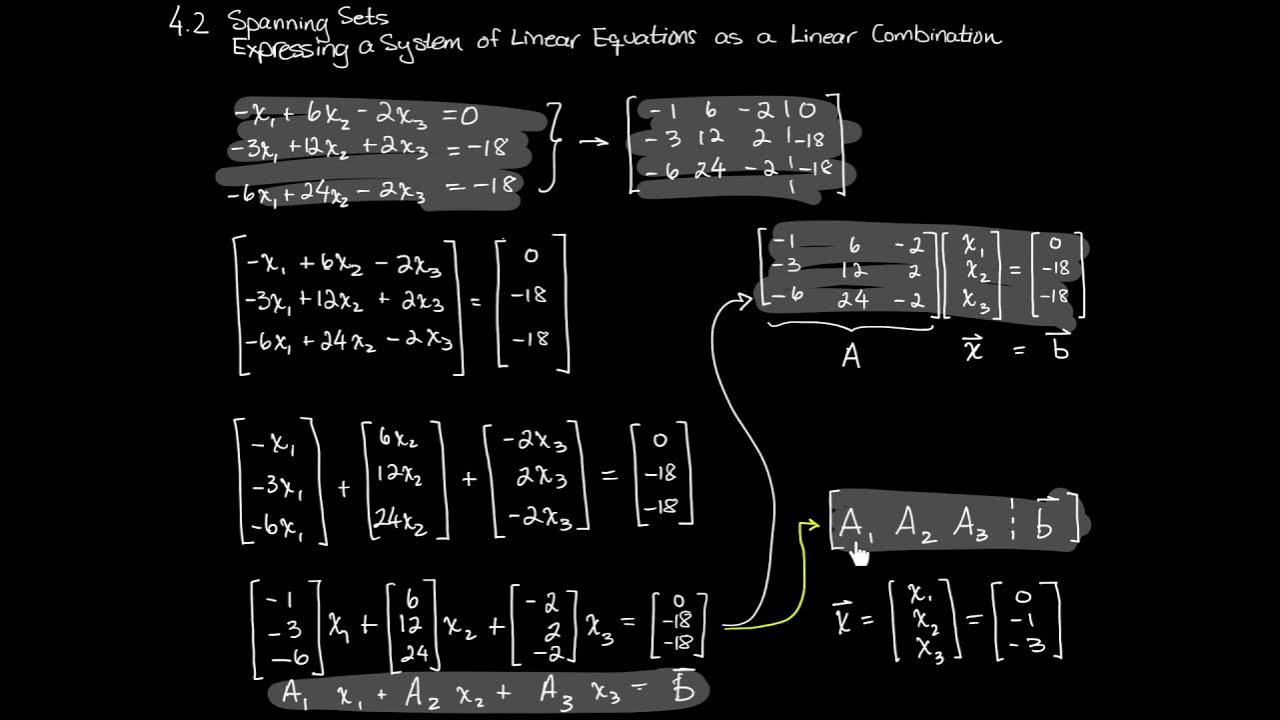 4.2 Spanning Sets
Expressing a System of Linear Equations as a Linear Combination
-x₁ + 6x₂ - 2x₃ = 0
-3x₁ + 12x₂ + 2x₃ = -18
-6x₁ + 24x₂ - 2x₃ = -18
} → [
-1 6 -2 | 0
-3 12 2 | -18
-6 24 -2 | -18
]
[
-x₁ + 6x₂ - 2x₃
-3x₁ + 12x₂ + 2x₃
-6x₁ + 24x₂ - 2x₃
] = [
0
-18
-18
]
[
-1 6 -2
-3 12 2
-6 24 -2
] [
x₁
x₂
x₃
] = [
0
-18
-18
]
A x⃗ = b⃗
[
-x₁
-3x₁
-6x₁
] + [
6x₂
12x₂
24x₂
] + [
-2x₃
2x₃
-2x₃
] = [
0
-18
-18
]
[ A₁ A₂ A₃ ¦ b⃗ ]
[
-1
-3
-6
] x₁ + [
6
12
24
] x₂ + [
-2
2
-2
] x₃ = [
0
-18
-18
]
x⃗ = [
x₁
x₂
x₃
] = [
0
-1
-3
]
A₁ x₁ + A₂ x₂ + A₃ x₃ = b⃗